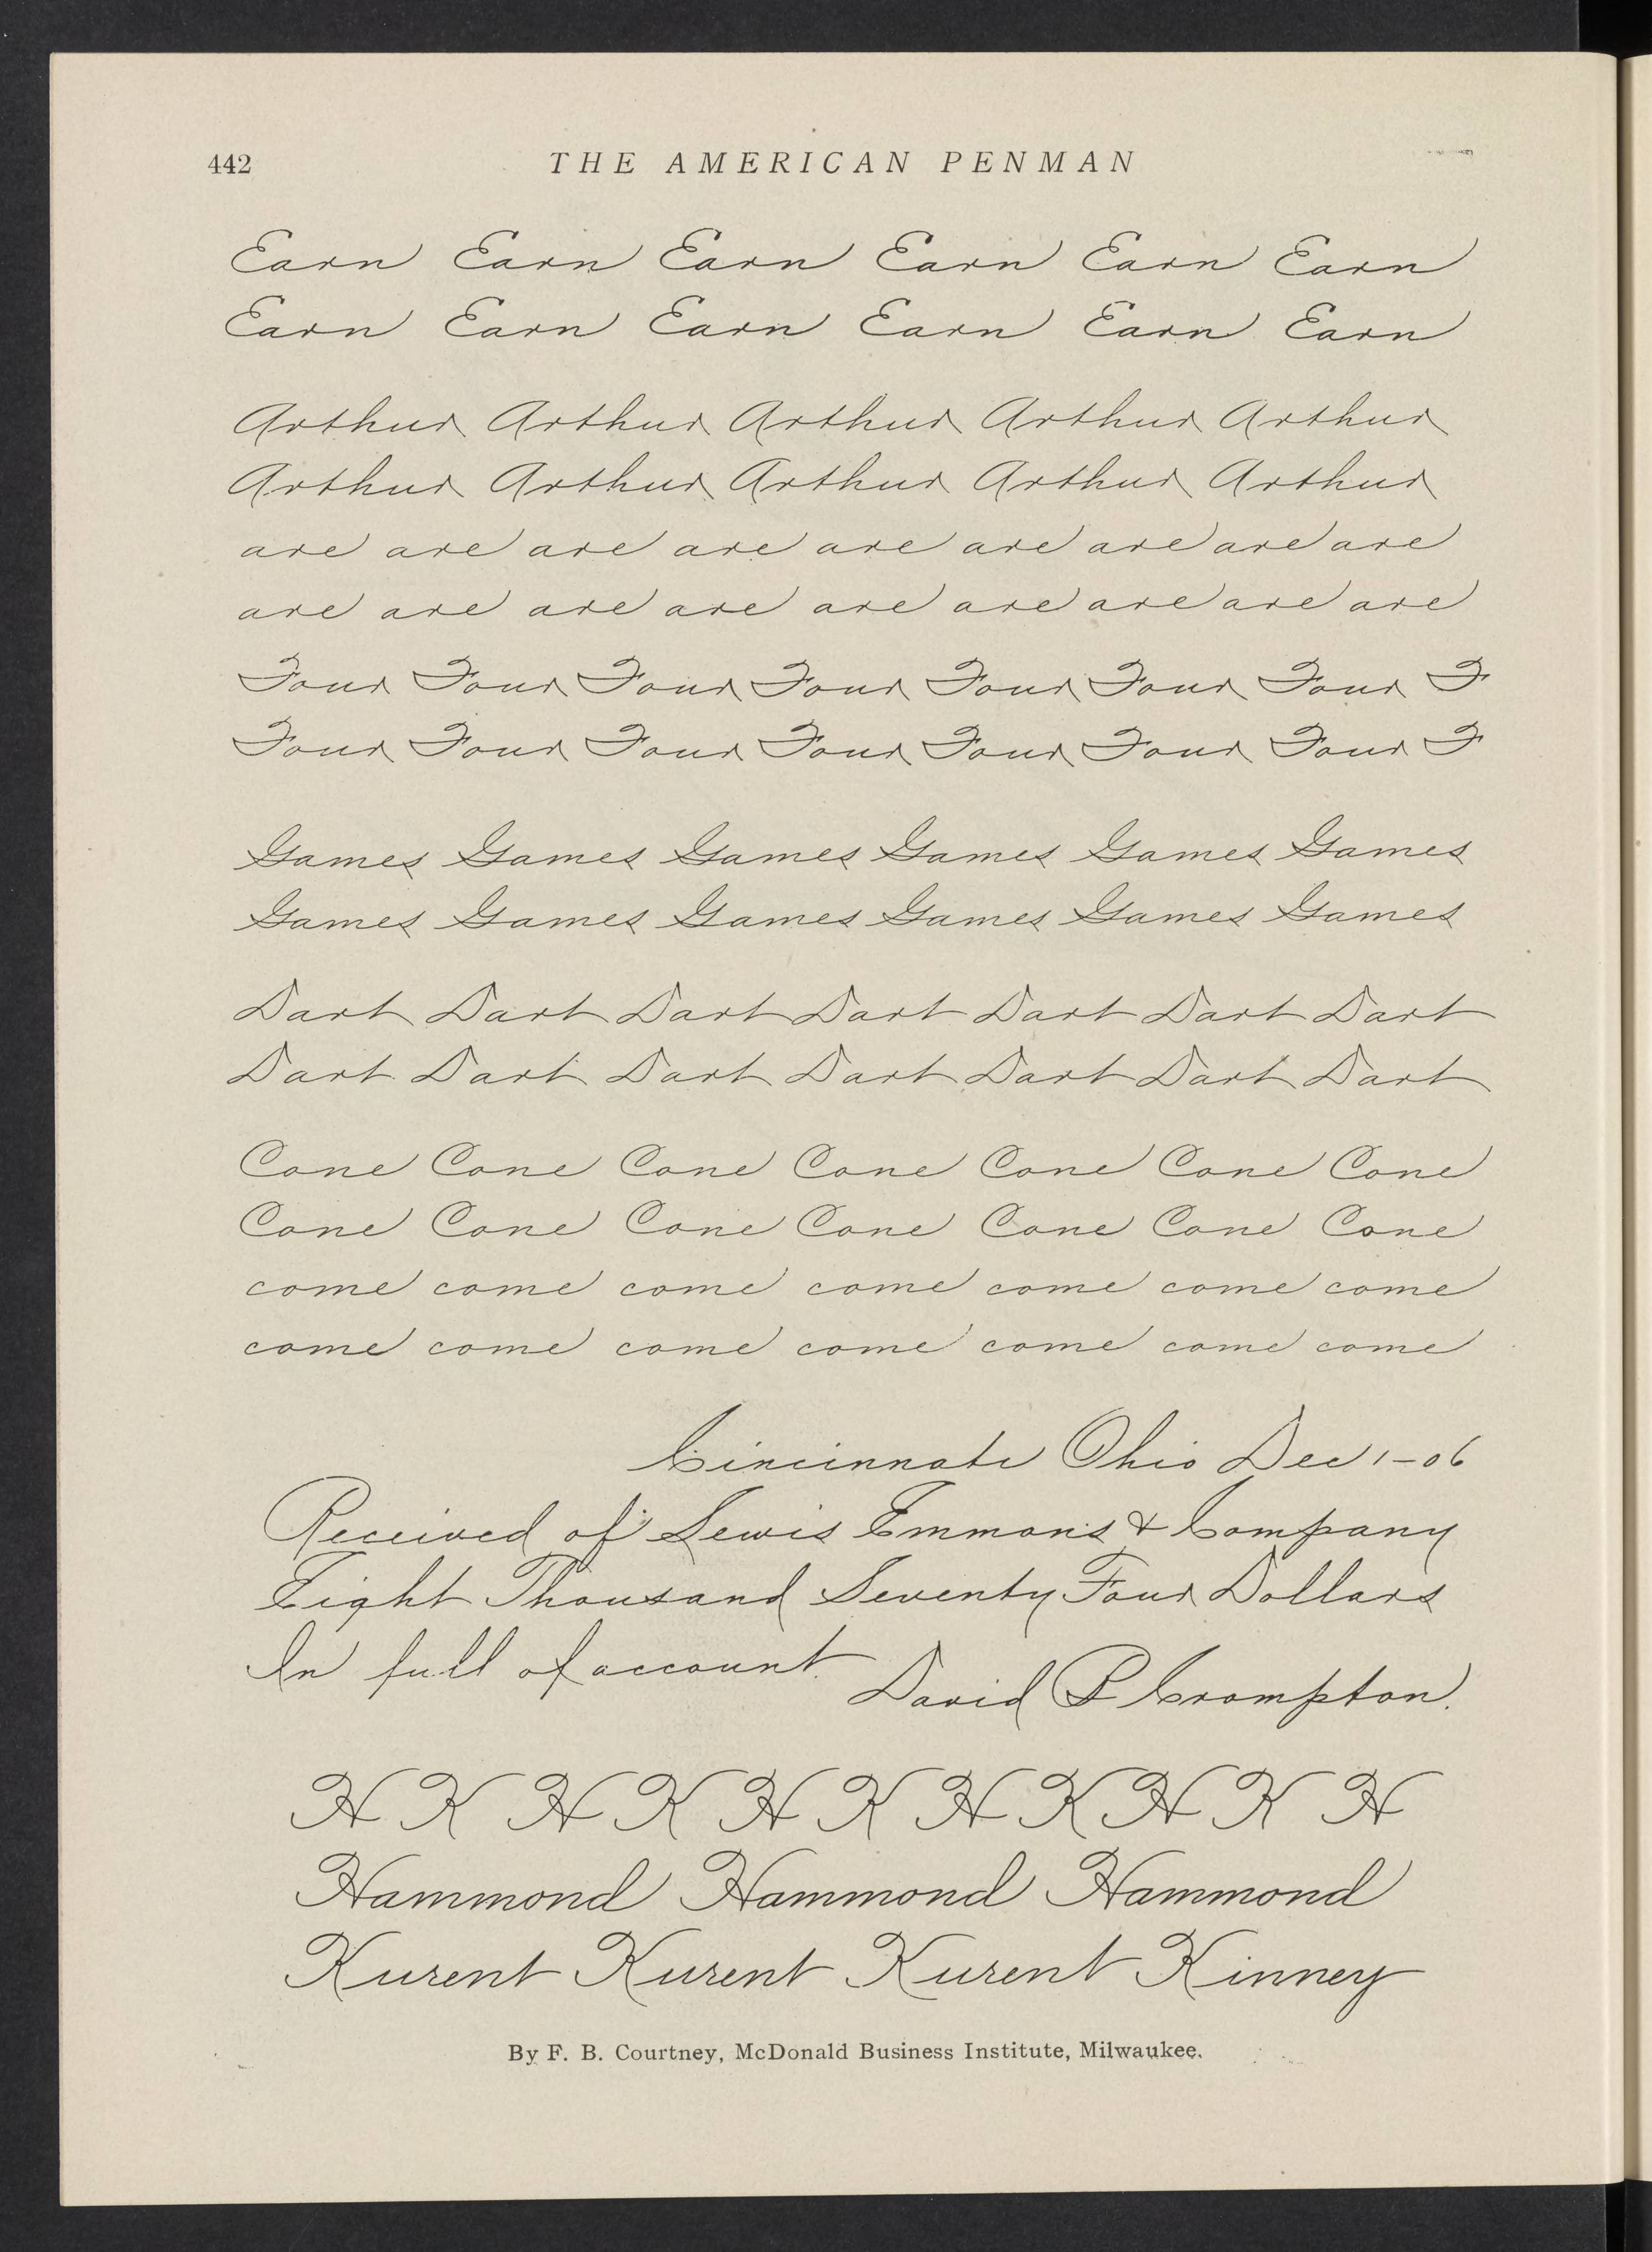 442 THE AMERICAN PENMAN
Earn Earn Earn Earn Earn Earn
Earn Earn Earn Earn Earn Earn
Arthur Arthur Arthur Arthur Arthur
Arthur Arthur Arthur Arthur Arthur
are are are are are are are are are
are are are are are are are are are
Four Four Four Four Four Four Four F
Four Four Four Four Four Four Four F
Games Games Games Games Games Games
Games Games Games Games Games Games
Dart Dart Dart Dart Dart Dart Dart
Dart Dart Dart Dart Dart Dart Dart
Cone Cone Cone Cone Cone Cone Cone
Cone Cone Cone Cone Cone Cone Cone
come come come come come come come
come come come come come come come
Cincinnati Ohio Dec 1-06
Received of Lewis Emmons & Company
Eight Thousand Seventy Four Dollars
In full of account.
David P Crompton.
H K H K H K H K H K H
Hammond Hammond Hammond
Kurent Kurent Kurent Kinney
By F. B. Courtney, McDonald Business Institute, Milwaukee.